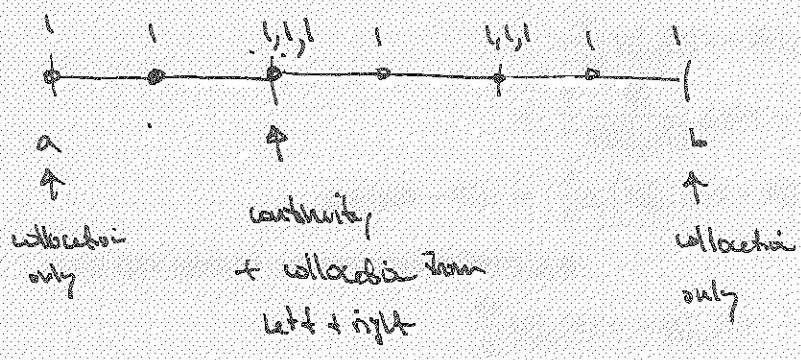 1 1 1,1,1 1 1,1,1 1 1
a b
collocation only
continuity
+ collocation from
left + right
collocation only